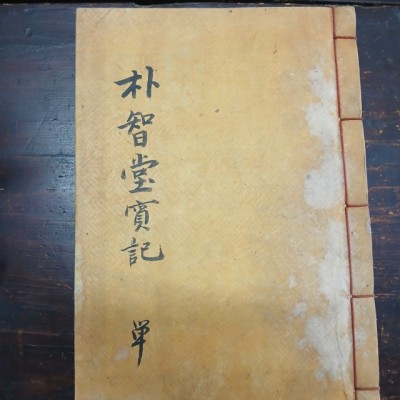 朴智堂實記
單